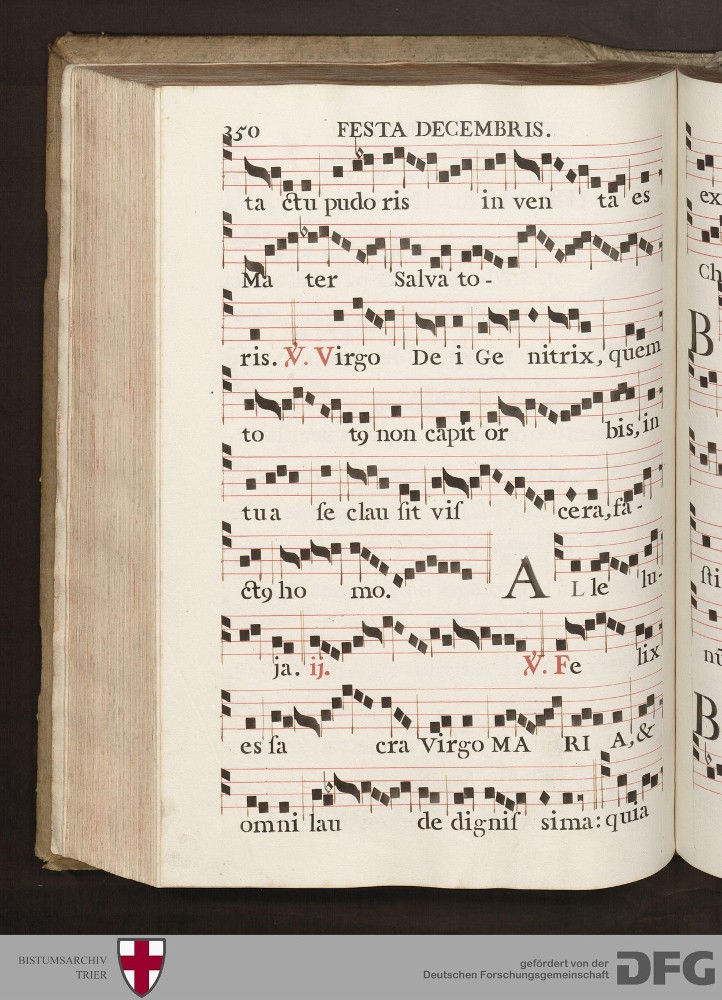 350 FESTA DECEMBRIS.
ta ctu pudo ris in ven ta es
Ma ter Salva to -
ris. ℣. Virgo De i Ge nitrix, quem
to tꝰ non capit or bis, in
tua ſe clau ſit viſ cera, fa -
ctꝰ ho mo. A L le lu-
ja. ij. ℣. Fe lix
es ſa cra Virgo MA RI A, &
omni lau de digniſ sima: quia
ex
Ch
B
ſti
nū
B
BISTUMSARCHIV
TRIER
gefördert von der
Deutschen Forschungsgemeinschaft
DFG